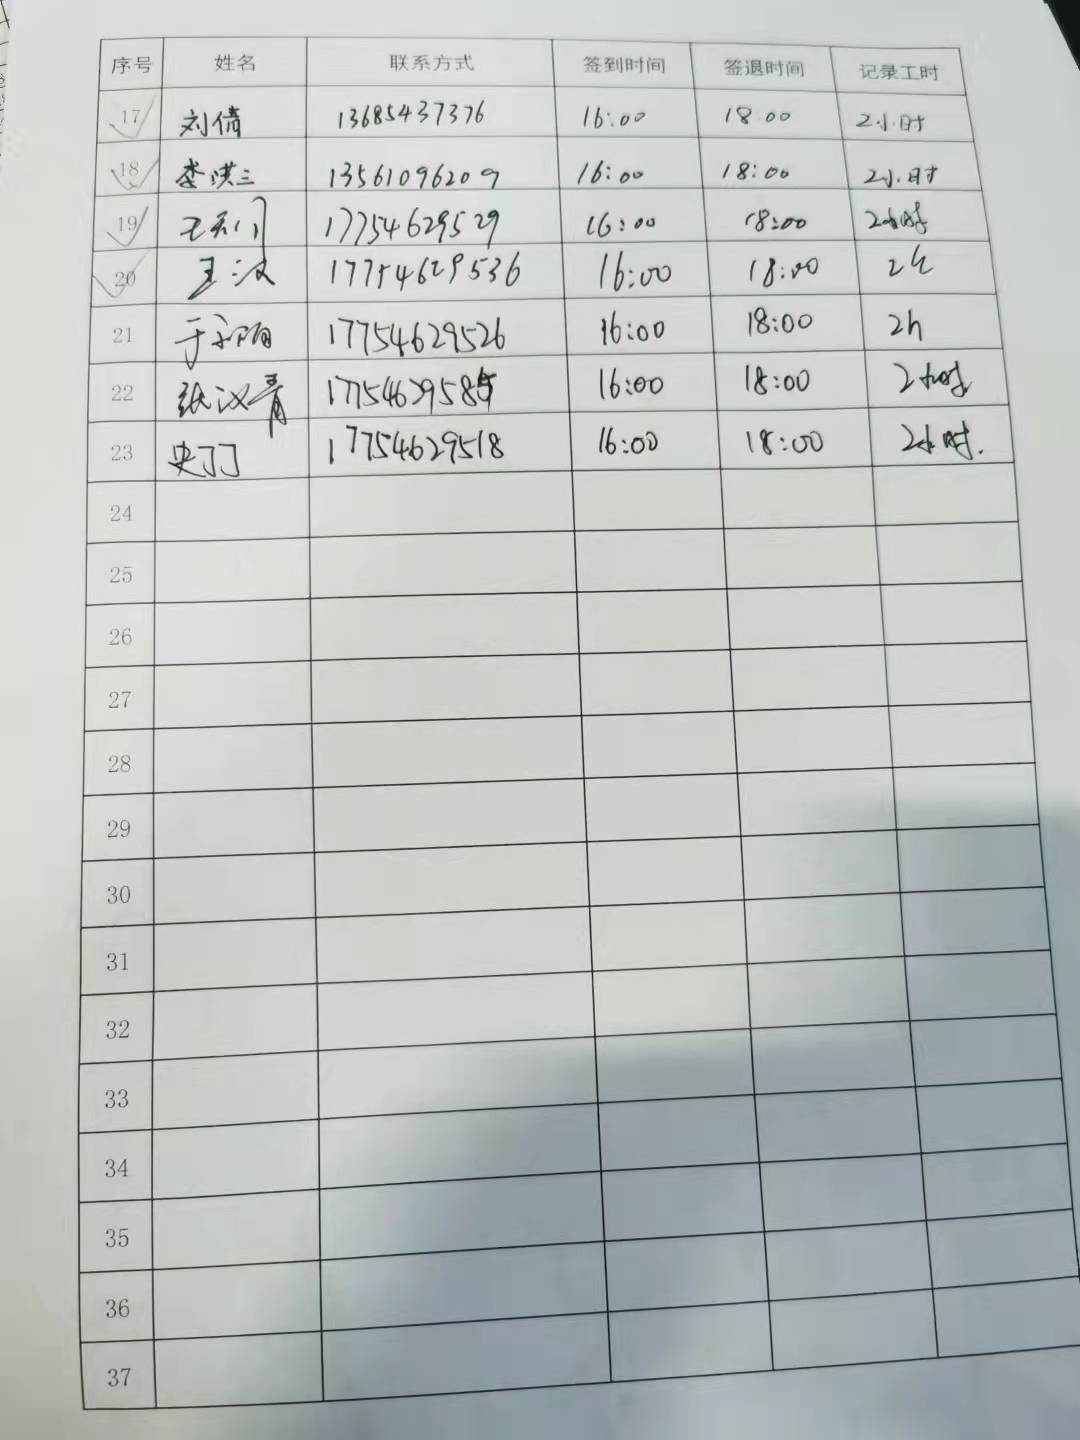 序号 姓名 联系方式 签到时间 签退时间 记录工时
17 刘倩 13685437376 16:00 18:00 2小时
18 李洪三 13561096209 16:00 18:00 2小时
19 王天门 17754629529 16:00 18:00 2小时
20 王汉 17754629536 16:00 18:00 2h
21 于 17754629526 16:00 18:00 2h
22 张汉青 17754629585 16:00 18:00 2小时
23 史丁丁 17754629518 16:00 18:00 2小时.
24
25
26
27
28
29
30
31
32
33
34
35
36
37